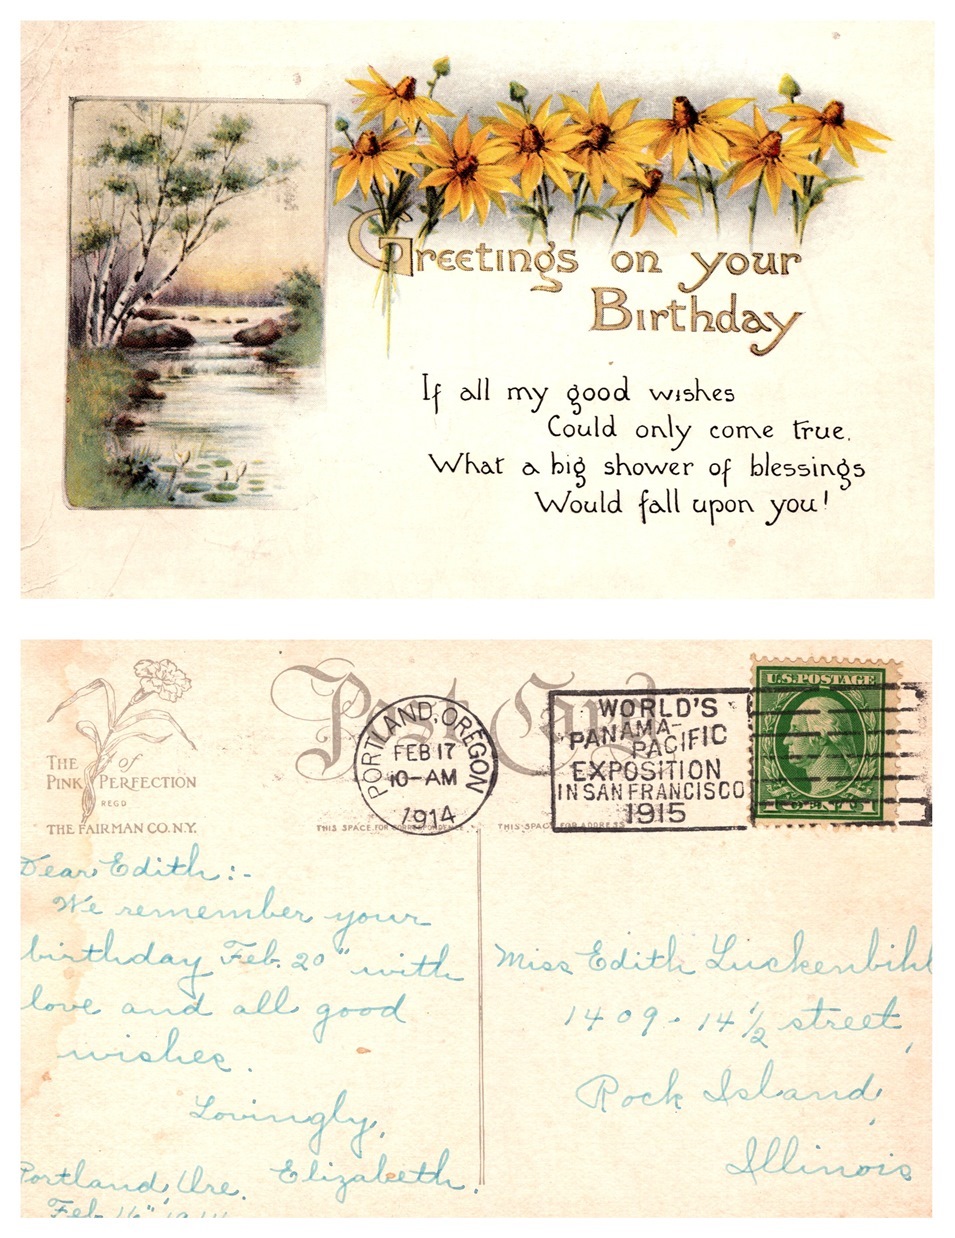 Greetings on your
Birthday
If all my good wishes
Could only come true.
What a big shower of blessings
Would fall upon you!
THE of
PINK PERFECTION
REGD
THE FAIRMAN CO. N.Y.
Post Card
PORTLAND, OREGON
FEB 17
10-AM
1914
WORLD'S
PANAMA-
PACIFIC
EXPOSITION
IN SAN FRANCISCO
1915
U.S. POSTAGE
THIS SPACE FOR CORRESPONDENCE
THIS SPACE FOR ADDRESS
Dear Edith:-
We remember your
birthday Feb. 20" with
love and all good
wishes.
Lovingly,
Elizabeth.
Portland, Ore.
Feb. 16" 1914
Miss Edith Luckenbihl
1409 - 14 1/2 street,
Rock Island,
Illinois